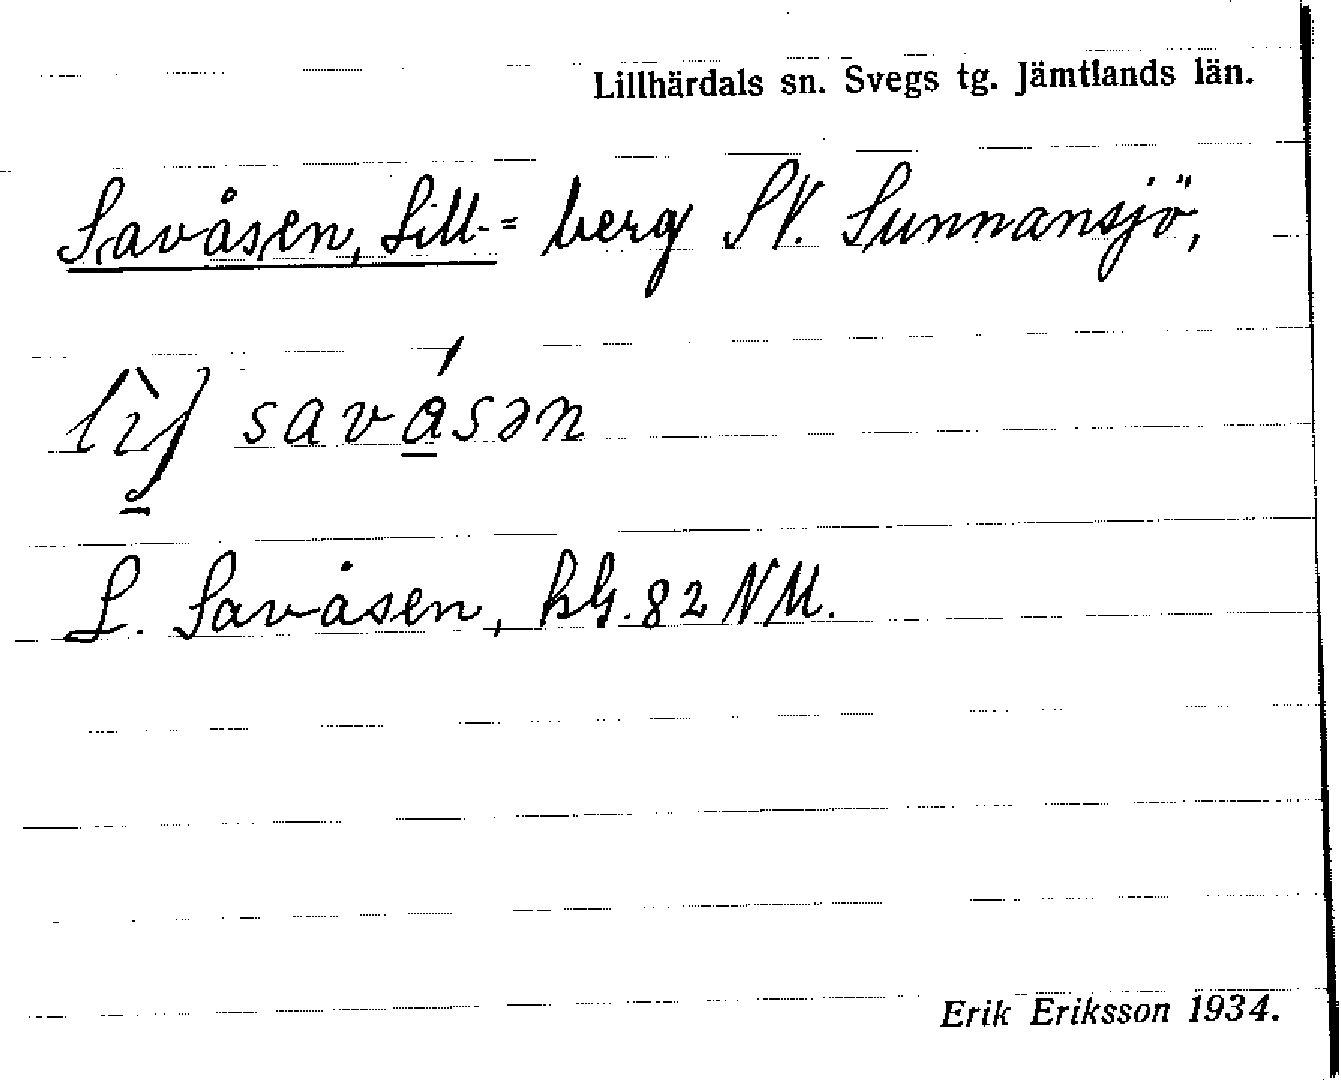 Lillhärdals sn. Svegs tg. Jämtlands län.
Savåsen, Lill- = berg SV. Sunnansjö,
savásən
L. Savåsen, kbl. 82 NM.
Erik Eriksson 1934.